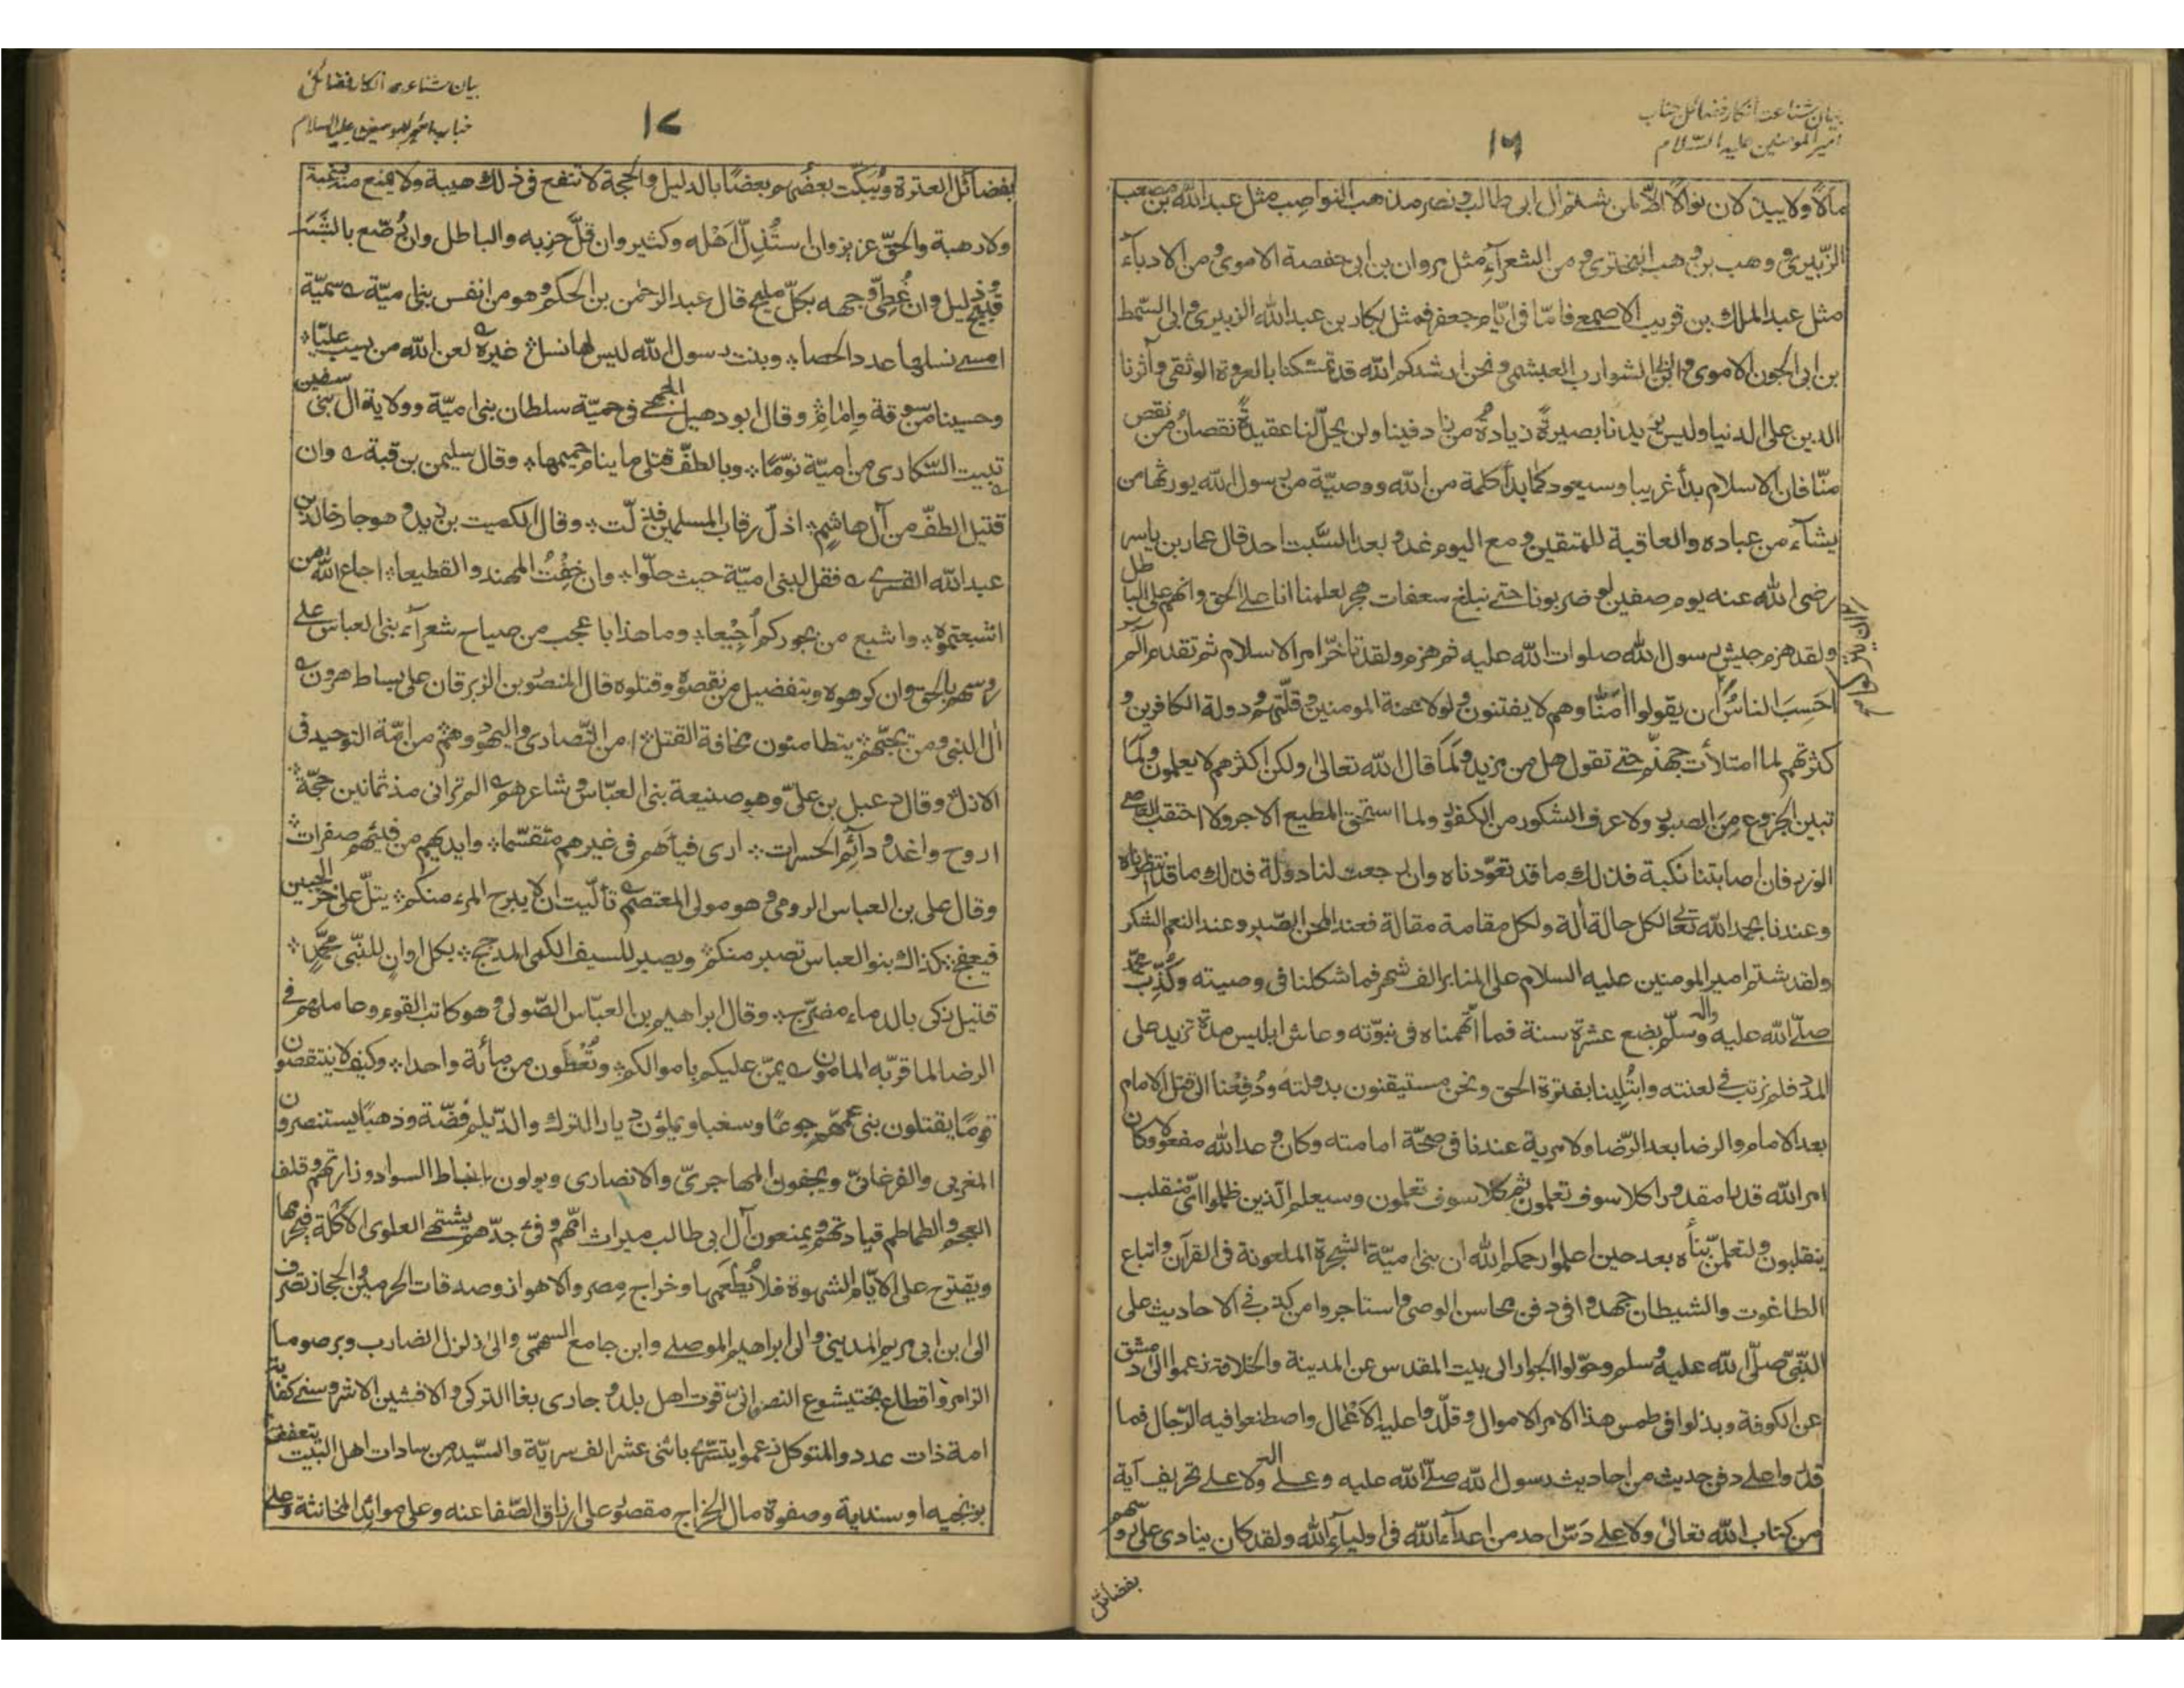 بيان شناعت انكار فضائل جناب
امير المومنين عليه السّلام
١٦
مالًا ولا يبذلان نوالًا الّا لمن شتم آل ابى طالب ونصر مذهب النواصب مثل عبد الله بن مصعب
الزّبيرى ووهب بن وهب البخترى ومن الشعرآء مثل مروان بن ابى حفصة الاموى ومن الادبآء
مثل عبد الملك بن قريب الاصمعى فامّا فى ايّام جعفر فمثل بكار بن عبد الله الزبيرى وابى السّمط
بن ابى الجون الاموى وابن ابى الشوارب العبشمى ونحن ارشدكم الله قد تمسّكنا بالعروة الوثقى وآثرنا
الدين على الدنيا وليس يزيدنا بصيرةً زيادةُ من زاد فينا ولن يحلّ لنا عقيدةً نقصانُ من نقص
منّا فان الاسلام بدأ غريبا وسيعود كما بدأ كلمة من الله ووصيّة من رسول الله يورثها من
يشآء من عباده والعاقبة للمتقين ومع اليوم غد وبعد السّبت احد قال عمار بن ياسر
رضى الله عنه يوم صفين لو ضربونا حتى نبلغ سعفات هجر لعلمنا انا على الحق وانهم على الباطل
ولقد هزم جيش رسول الله صلوات الله عليه ثم هزم ولقد تاخّر امر الاسلام ثم تقدم الٓمٓ
اَحَسِبَ الناسُ ان يقولوا اٰمنّا وهم لا يفتنون ولولا محنة المومنين وقلّتهم ودولة الكافرين و
كثرتهم لما امتلأت جهنّم حتى تقول هل من مزيد ولَمَا قال الله تعالى ولكن اكثرهم لا يعلمون ولَمَا
تبين الجزوع من الصبور ولا عرف الشكور من الكفور ولما استحق المطيع الاجر ولا احتقب العاصى
الوزر فان اصابتنا نكبة فذلك ما قد تعوّدناه وان رجعت لنا دولة فذلك ما قد انتظرناه
وعندنا بحمد الله تعالى لكل حالة آلة ولكل مقامة مقالة فعند المحن الصّبر وعند النعم الشكر
ولقد شتم امير المومنين عليه السلام على المنابر الف شهر فما شككنا فى وصيته وكُذّب محمّد
صلّى الله عليه وآله وسلّم بضع عشرة سنة فما اتّهمناه فى نبوّته وعاش ابليس مدة تزيد على
المدد فلم نرتب فى لعنته وابتُلينا بفترة الحق ونحن مستيقنون بدولته ودُفِعْنا الى قتل الامام
بعد الامام والرضا بعد الرّضا ولا مرية عندنا فى صحّة امامته وكان وعد الله مفعولا وكان
امر الله قدرا مقدورا كلا سوف تعلمون ثم كلا سوف تعلمون وسيعلم الّذين ظلموا اىّ منقلب
ينقلبون ولتعلمنّ نبأه بعد حين اعلموا رحمكم الله ان بنى اميّة الشجرة الملعونة فى القرآن واتباع
الطاغوت والشيطان جهدوا فى دفن محاسن الوصى واستاجروا من كذب فى الاحاديث على
النّبىّ صلّى الله عليه وسلم وحوّلوا الجوار الى بيت المقدس عن المدينة والخلافة زعموا الى دمشق
عن الكوفة وبذلوا فى طمس هذا الامر الاموال وقلّدوا عليه الاعْمال واصطنعوا فيه الرّجال فما
قدروا على دفن حديث من احاديث رسول الله صلّى الله عليه وعلى اله ولا على تحريف آية
من كتاب الله تعالى ولا على دَسّ احد من اعدآء الله فى اوليآء الله ولقد كان ينادى على رؤسهم
بفضائل
بيان شناعت انكار فضائل
جناب امير المومنين عليه السلام
١٧
بفضآئل العترة ويُبكّت بعضُهم بعضًا بالدليل والحجة لا تنفع فى ذلك هيبة ولا يمنع منه رغبة
ولا رهبة والحقّ عزيز وان استُذِلّ اَهْله وكثير وان قَلّ حِزبه والباطل وان رُصّع بالشَّبَه
قبيح وذليل وان غُطِّى وجهه بكلّ مليح قال عبد الرحمن بن الحكم وهو من انفس بنى اميّة ؎ سميّة
امسى نسلها عدد الحصا ؞ وبنت رسول الله ليس لها نسل ؞ غيره ؎ لعن الله من يسب عليّا ؞
وحسينا من سوقة وامام ؞ وقال ابو دهبل الجمحى فى حميّة سلطان بنى اميّة وولاية آل بنى سفين
تبيت السّكارى من اميّة نوّمًا ؞ وبالطفّ قتلى ما ينام حميمها ؞ وقال سليمن بن قبة ؎ وان
قتيل الطفّ من آل هاشم ؞ اذلّ رقاب المسلمين فذلّت ؞ وقال الكميت بن زيد وهو جار خالد بن
عبد الله القسرى ؎ فقل لبنى اميّة حيث حلّوا ؞ وان خِفْتَ المهند والقطيعا ؞ اجاع الله من
اشبعتموه ؞ واشبع من بجوركم اُجِيْعا ؞ وما هذا باعجب من صياح شعرآء بنى العباس على
رؤسهم بالحق وان كرهوه وبتفضيل من نقصوه وقتلوه قال المنصور بن الزبرقان على بساط هرون ؎
آل النبى ومن يحبّهم ؞ يتطامنون مخافة القتل ؞ امن النّصارى واليهود وهم ؞ من امّة التوحيد فى
الازل ؞ وقال دعبل بن علىّ وهو صنيعة بنى العبّاس وشاعرهم ؎ الم ترانى مذ ثمانين حجّة ؞
اروح واغدو دآئم الحسرات ؞ ارى فيأهم فى غيرهم متقسّما ؞ وايديهم من فيئهم صفرات ؞
وقال على بن العباس الرومى وهو مولى المعتصم ؎ تألّيت ان لا يبرح المرء منكم ؞ يتلّ على حرّ الجبين
فيعفج ؞ كذاك بنو العباس تصبر منكم ؞ ويصبر للسيف الكمى المدجج ؞ بكل اوان للنّبى محمّد ؞
قتيل زكى بالدماء مضرّج ؞ وقال ابراهيم بن العبّاس الصّولى وهو كاتب القوم وعاملهم فى
الرضا لما قرّبه المامون ؎ يمنّ عليكم باموالكم ؞ وتُعْطَون من مائة واحدا ؞ وكيف لا ينتقصون
قومًا يقتلون بنى عمّهم جوعًا وسغبا ويملؤن ديار الترك والدّيلم فضّة وذهبًا يستنصرون
المغربى والفرغانىّ ويجفون المهاجرىّ والانصارى ويولون انباط السواد وزارتهم وقلف
العجم والطماطم قيادتهم ويمنعون آل ابى طالب ميراث امّهم وفئ جدّهم يشتهى العلوى الاكلة فيحرمها
ويقترح على الايّام الشهوة فلا يُطعَمها وخراج مصر والاهواز وصدقات الحرمين والحجاز تصرف
الى ابن ابى مريم المدينى والى ابراهيم الموصلى وابن جامع السهمى والى زلزل الضارب وبرصوما
الزامر واقطاع بختيشوع النصرانىّ قوت اهل بلد وجارى بغا التركى والافشين الاشروسنى كفاية
امة ذات عدد والمتوكل زعموا يتسرّى باثنى عشر الف سريّة والسّيد من سادات اهل البيت يتعفف
بزنجيه او سندية وصفوة مال الخراج مقصور على ارزاق الصّفاعنه وعلى موائد المخانثة وعلى